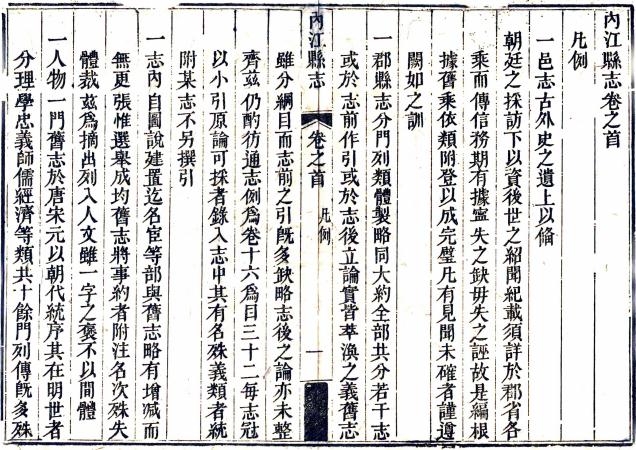 內江縣志卷之首
凡例
一邑志古外史之遺上以備
朝廷之採訪下以資後世之紹聞紀載須詳於郡省各
乘而傳信務期有據寧失之缺毋失之誣故是編根
據舊乘依類附登以成完璧凡有見聞未確者謹遵
闕如之訓
一郡縣志分門列類體製略同大約全部共分若干志
或於志前作引或於志後立論實皆萃渙之義舊志
內江縣志
卷之首
凡例
一
雖分綱目而志前之引旣多缺略志後之論亦未整
齊茲仍酌彷通志例爲卷十六爲目三十二每志冠
以小引原論可採者錄入志中其有名殊義類者統
附某志不另撰引
一志內自圖說建置迄名宦等部與舊志略有增減而
無更張惟選舉成均舊志將事約者附注名次殊失
體裁茲爲摘出列入人文雖一字之褒不以間體
一人物一門舊志於唐宋元以朝代統序其在明世者
分理學忠義師儒經濟等類共十餘門列傳旣多殊